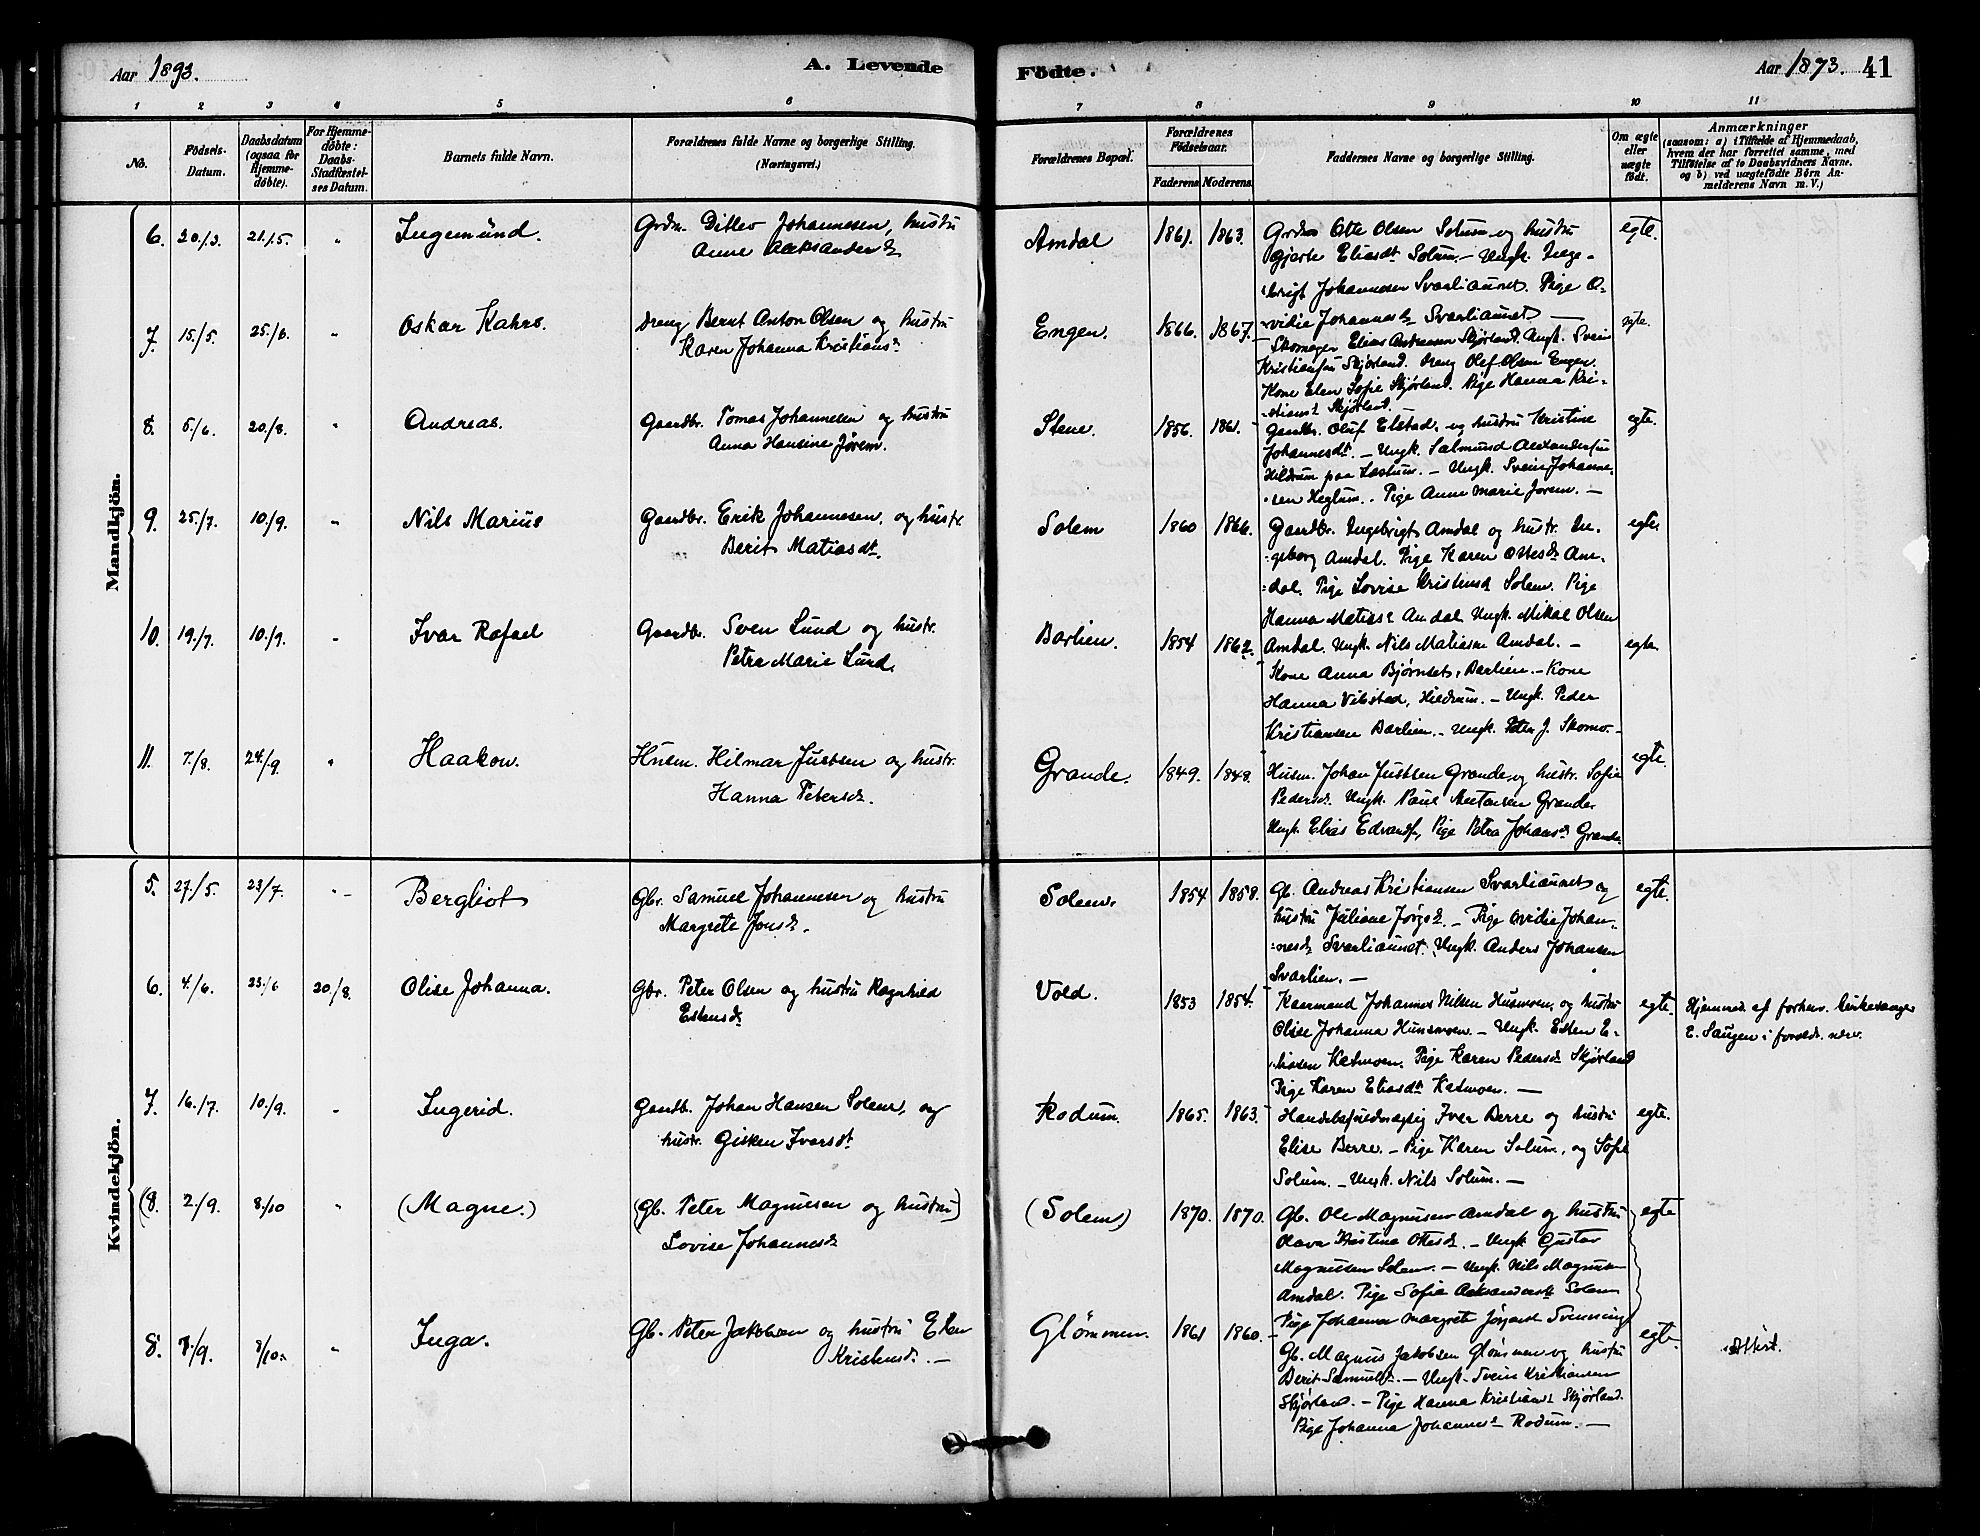 Aar 1893.
A. Levende
Födte.
Aar 1893. 41
1 2 3 4 5 6 7 8 9 10 11
No.
Födsels-Datum.
Daabsdatum (ogsaa for Hjemmedöbte).
For Hjemmedöbte: Daabs-Stadfæstelses Datum.
Barnets fulde Navn.
Forældrenes fulde Navne og borgerlige Stilling. (Næringsvei.)
Forældrenes Bopæl.
Forældrenes Födselsaar.
Faderens. Moderens.
Faddernes Navne og borgerlige Stilling.
Om ægte eller uægte födt.
Anmærkninger
(saasom: a) i Tilfælde af Hjemmedaab, hvem der har forrettet samme, med Tilföielse af to Daabsvidners Navne, og b) ved uægtefödte Börn Anmelderens Navn m. V.)
Mandkjön.
6. 20/3. 21/5. " Ingemund. Grdm. Ditlev Johannesen, hustru
Anne Aleksandersd.
Amdal 1861. 1863. Grdm Otte Olsen Solum og hustru
Gjertr Eliasdt Solum. – Ungk. Inge-
brigt Johannesen Svarliaunet. Pige O-
vidie Johannesd Svarliaunet –
egte.
7. 15/5. 25/6. " Oskar Kahrs. Dreng Bernt Anton Olsen og hustru
Karen Johanna Kristiansd
Engen. 1866. 1867. Skomager Elias Andreasen Skjørland. Ungk. Svein
Kristiansen Skjørland. Dreng Olef Olsen Engen.
Kone Elen Sofie Skjørland. Pige Hanna Kri-
stiansd Skjørland.
egte.
8. 5/6. 20/8. " Andreas. Gaardbr. Tomas Johannesen og hustru
Anna Hansine Jørem.
Stene. 1856. 1861. Gaardbr. Oluf Elstad, og hustru Kristine
Johannesdt. – Ungk. Salmund Alexandersen
Hildrum paa – Ungk. Svein Johanne-
sen Heglum. Pige Anne Marie Jørem. –
egte.
9. 25/7. 10/9. " Nils Marius Gaardbr. Erik Johannesen, og hustr.
Berit Matiasdt.
Solem 1860 1866. Gaardbr. Ingebrigt Amdal og hustr. In-
geborg Amdal. Pige Karen Ottesd Am-
dal. Pige Lovise Kristensd Solem. Pige
Hanna Matiasd Amdal Ungk. Mikal Olsen
Amdal. Ungk. Nils Matiasen Amdal. –
egte.
10. 19/7. 10/9. " Ivar Rafael Gaardbr. Sven Lund og hustr.
Petra Marie Lund.
Barlien. 1854 1862. Kone Anna Bjørnset, Barlien. – Kone
Hanna Vibstad, Hildrum. – Ungk. Peder
Kristiansen Barlien. – Ungk. Peter J. Skomo. –
egte.
11. 7/8. 24/9. " Haakon. Husm. Hilmar Justsen og hustr.
Hanna Petersd.
Grande. 1849. 1848. Husm. Johan Justsen Grande, og hustr. Sofie
Pedersd. Ungk. Paul Grande
Ungk. Elias Edvards, Pige Petra Johansd Grande.
egte.
Kvindekjön.
5. 27/5. 23/7. " Bergliot Gbr. Samuel Johannesen og hustru
Margrete Jonsd.
Solem. 1854 1858. Gb. Andreas Kristiansen Svarliaunet og
hustru Juliane Jørgsd. – Pige Ovidie Johan-
nesd Svarliaunet. Ungk. Anders Johansen
Svarlien. –
egte.
6. 4/6. 23/6 20/8. Olise Johanna. Gbr. Peter Olsen og hustru Ragnhild
Estensd
Vold. 1853 1854. Kaarmand Johannes Nilsen Husmoen, og hustru
Olise Johanna Husmoen. – Ungk. Esten E-
liasen Katmoen. Pige Karen Pedersd Skjørland
Pige Karen Eliasdt Katmoen. –
egte.
Hjemmed. af forhenv. Kirkesanger
E. Saugen i foreldr. nærv.
7. 16/7. 10/9. " Ingerid. Gaardb. Johan Hansen Solem, og
hustr. Gisken Ivarsdt
Rodum. 1865. 1863. Ivar Berre og hustru
Elise Berre. – Pige Karen Solum, og Sofie
Solum. – Ungk. Nils Solum. –
egte.
(8. 2/9. 8/10 " (Magne.) (Gb. Peter Magnussen og hustru)
Lovise Johannesd
(Solem) 1870. 1870. Gb. Ole Magnussen Amdal og hustru
Olava Kristina Ottesd. – Ungk Gustav
Magnussen Solem. – Ungk. Nils Magnussen
Amdal. Pige Sofie Aleksandersd Solem
Pige Johanna Margrete Jørgensd
egte
8. 7/9. 8/10. " Inga. Gb. Peter Jakobsen og hustru Elen
Kristensd. –
Glömmen. 1861 1860. Gb. Magnus Jakobsen Glömmen og hustru
Berit Samuelsd. – Ungk. Svein Kristiansen
Skjørland. – Pige Hanna Kristiansd Skjørland.
Pige Johanna Johannesd Rodum. –
egte.
Attest.